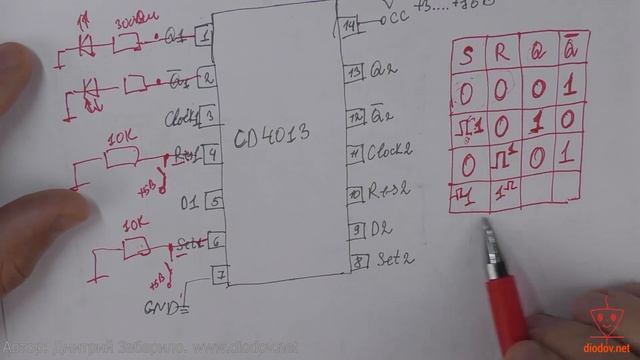 300Ωm
Q1 1
Q̅1 2
Clock1 3
10K
Res1 4
+5В
D1 5
10K
Set1 6
+5В
7
GND
CD4013
14 Vcc +3....+15В
13 Q2
12 Q̅2
11 Clock2
10 Res2
9 D2
8 Set2
S R Q Q̅
0 0 0 1
1 0 1 0
0 1 0 1
1 1
Автор: Дмитрий Забарило. www.diodov.net
diodov.net